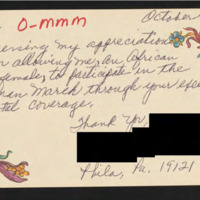 October
O-mmm
ensing my appreciation
r allowing me, an African
female, to participate in the
an March through your
tal coverage.
Thank You,
Phila, Pa. 19121